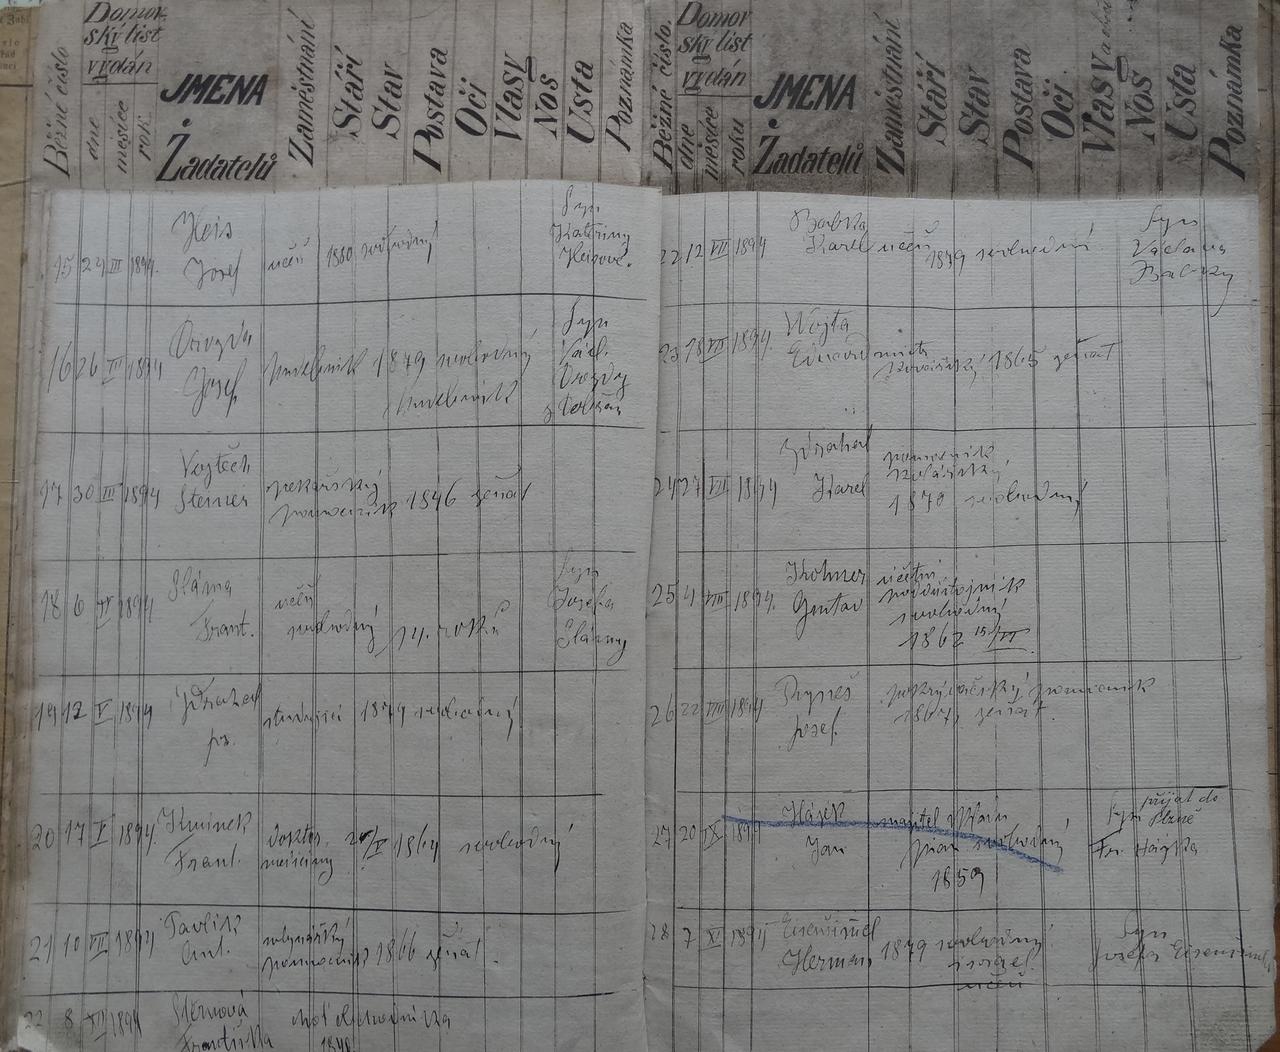 Běžné číslo
Domov
ský list
vydán
dne
měsíce
roku
JMENA
Žadatelů
Zaměstnání
Stáří
Stav
Postava
Oči
Vlasy
Nos
Usta
Poznámka
15 24 III 1894.
Heis
Josef
učeň 1880 svobodný
Syn
Kateřiny
Heisové.
16 26 III 1894
Josef
1879 svobodný
Syn
Václ.
17 30 III 1894
Vojtěch
Steiner
pekařský
pomocník 1846 ženat
18 6 IV 1894
Sláma
Frant.
učeň
svobodný 14. roků
Syn
Josefa
Slámy
19 12 V 1894
Zdrahal
studující 1874 svobodný
20 17 V 1894.
Kminek
Frant.
doktor
medicíny
1864 svobodný
21 10 VII 1894
Pavlík
Ant.
mlynářský
pomocník 1866 ženat.
22 8 XII 1894
Sternová
Františka
choť obchodníka
1848
Běžné číslo.
Domov
ský list
vydán
dne
měsíce
roku
JMENA
Žadatelů
Zaměstnání
Stáří
Stav
Postava
Oči
Vlasy
Nos
Usta
Poznámka
22 12 VII 1894
Babka
Karel učeň 1879 svobodný
Syn
Václava
Babky
23 18 VII 1894.
Wojta
Eduard
kovářský 1865 ženat
24 27 VII 1894
Zdrahal
Karel
pomocník
kolářský
1870 svobodný
25 4 VIII 1894.
Kohner
Gustav
účetní
poddůstojník
svobodný
1862 15/III
26 22 VIII 1894
Josef.
pokrývačský pomocník
1867, ženat.
27 20 IX 1894
Hájek
Jan
majitel
svobodný
1859
přijat do
Syn Plzně
Fr. Hájka
28 7 XI 1894
Eisenšiml
Herman 1879 svobodný
israel.
učeň
Syn
Josefa Eisenšimla